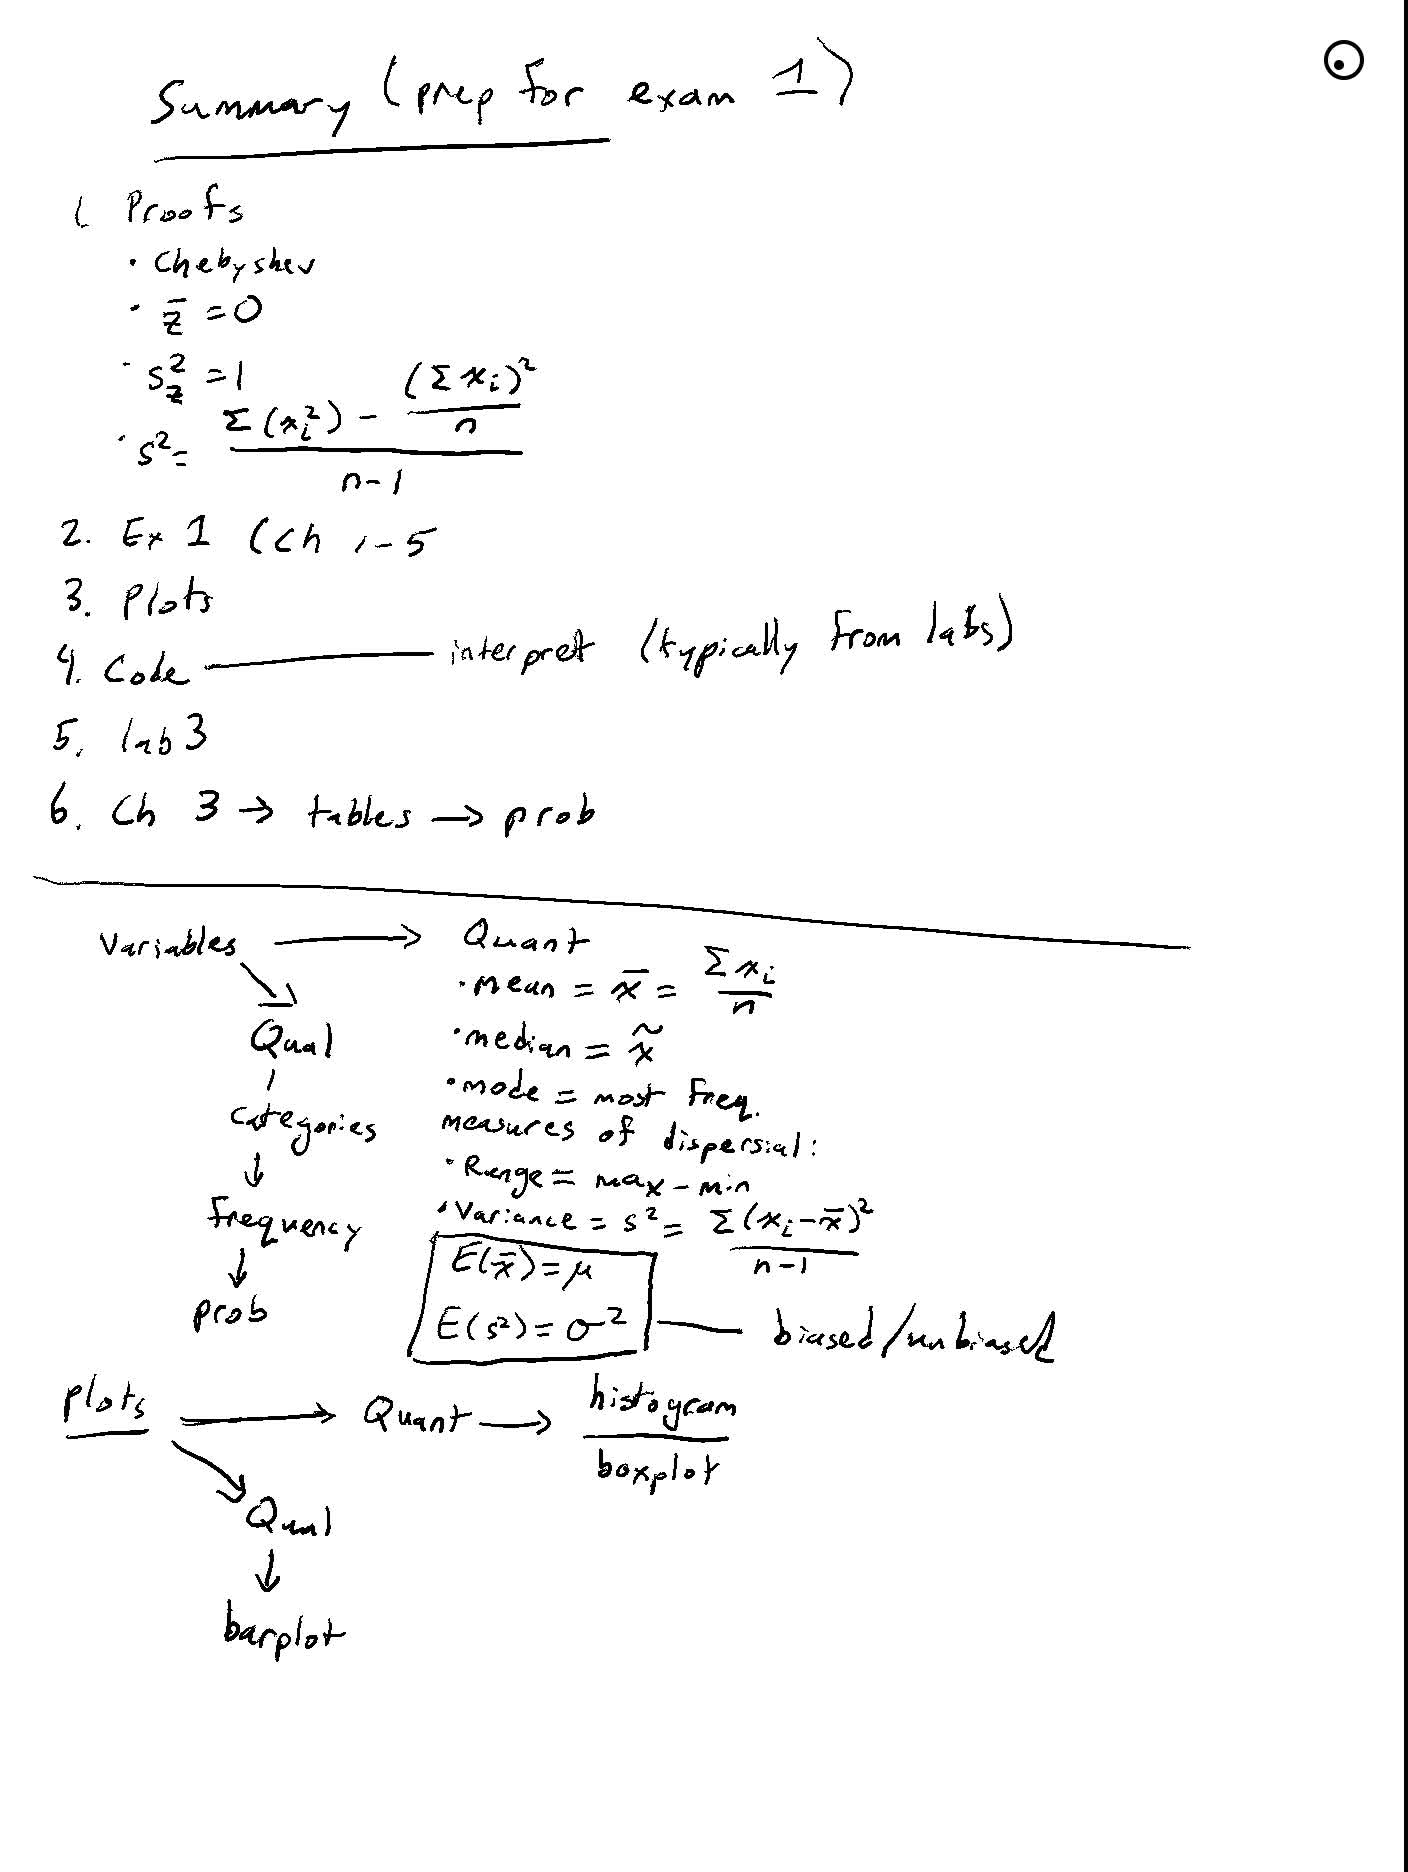 Summary (prep for exam 1)
1 Proofs
• Chebyshev
• z̄ = 0
• s_z² = 1
• s² = (Σ(xᵢ²) - (Σxᵢ)²/n) / (n-1)
2. Ex 1 (Ch 1-5
3. Plots
4. Code — interpret (typically from labs)
5. lab 3
6. Ch 3 → tables → prob
Variables → Quant
• mean = x̄ = Σxᵢ / n
Qual
• median = x̃
• mode = most freq.
categories
measures of dispersial:
• Range = max - min
frequency
• Variance = s² = Σ(xᵢ - x̄)² / (n-1)
E(x̄) = μ
prob
E(s²) = σ² — biased/unbiased
plots → Quant → histogram
boxplot
Qual
↓
barplot